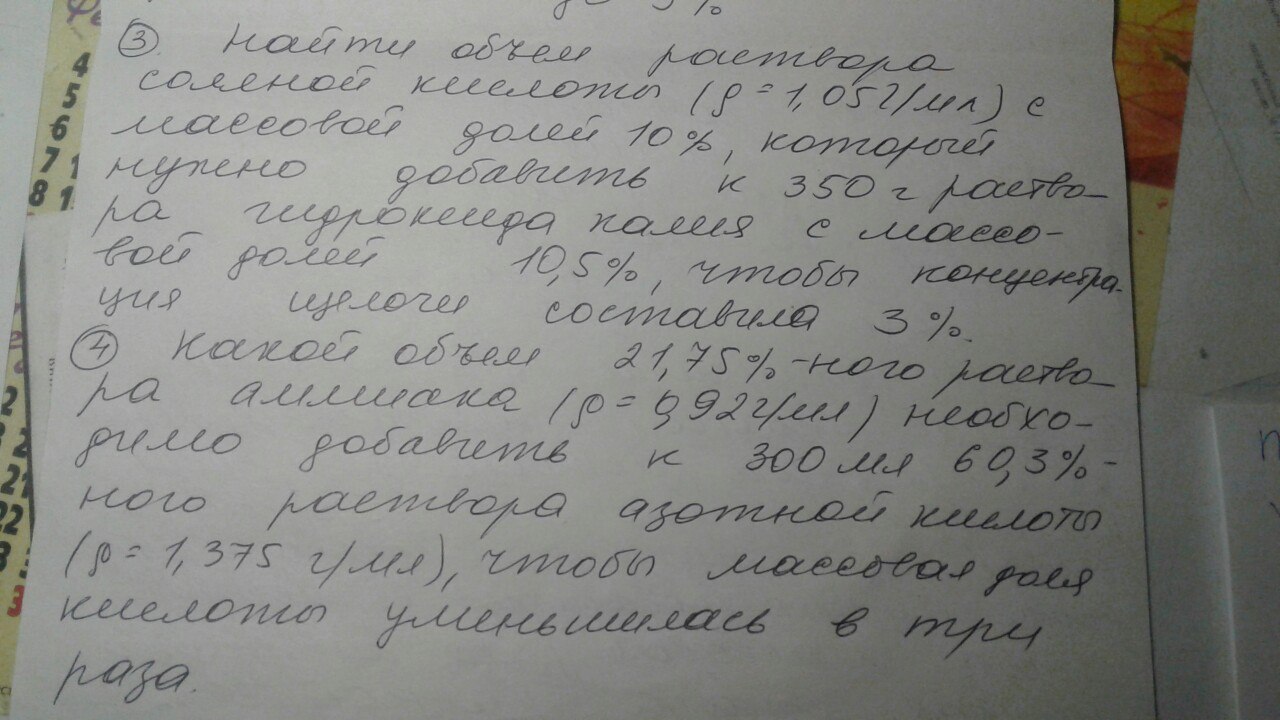 5%
③. Найти объем раствора
соляной кислоты (ρ = 1,05 г/мл) с
массовой долей 10%, который
нужно добавить к 350 г раство-
ра гидроксида калия с массо-
вой долей 10,5%, чтобы концентра-
ция щелочи составила 3%.
④ Какой объем 21,75%-ного раство-
ра аммиака (ρ = 0,92 г/мл) необхо-
димо добавить к 300 мл 60,3%-
ного раствора азотной кислоты
(ρ = 1,375 г/мл), чтобы массовая доля
кислоты уменьшилась в три
раза.
4
5
6
7 1
8 1
2
2
21
22
3